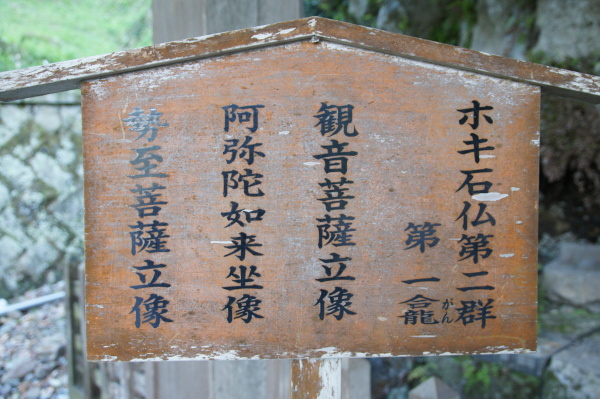 ホキ石仏第二群
第一龕
がん
観音菩薩立像
阿弥陀如来坐像
勢至菩薩立像